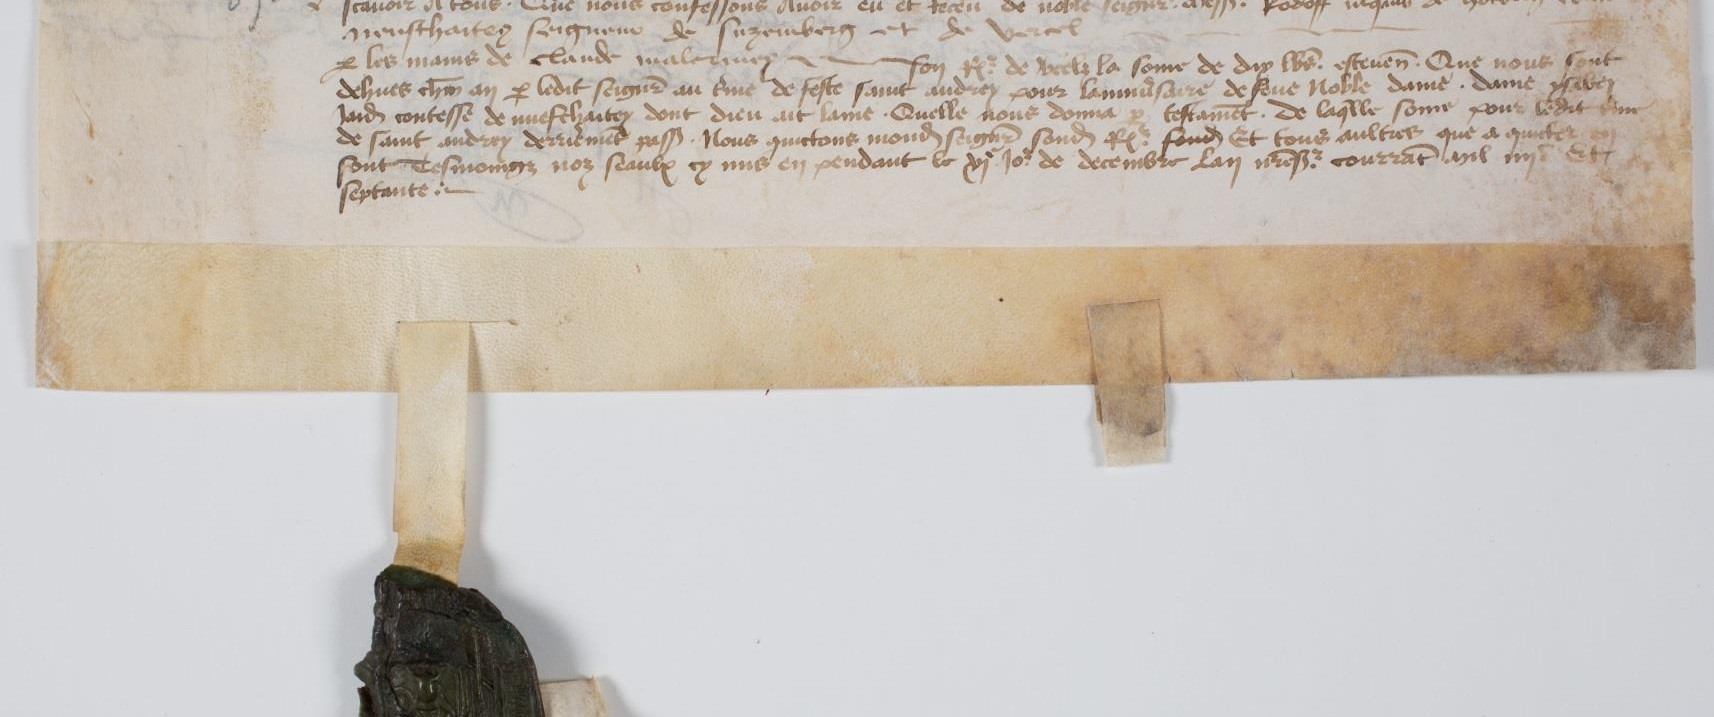 scavoir A tous . Que nous confessons Avoir eu et receu de noble seigr . Mess. Rodoff
neufchaitey seigneur de suzemberg et de vercel
p les mains de Claude malermey son Rr. de vercelz la some de dix lbs. estevens . Que nous sont
dehues chun an p ledit seignr au tme de feste saint andrey pour lannivsaire de feue Noble dame . dame
Jaidis contesse de nuefchaitey dont dieu ait lame . Quelle nous donna p testamet . de laqlle some pour ledit tme
de saint andrey derriemet pass . Nous quictons mondit seignr sondit Rr. Et tous aultres que a quicter en
sont Tesmoingz noz seaulx cy mis en pendant le xje Jor de decembre Lan courrat mil iiijc Et
septante :